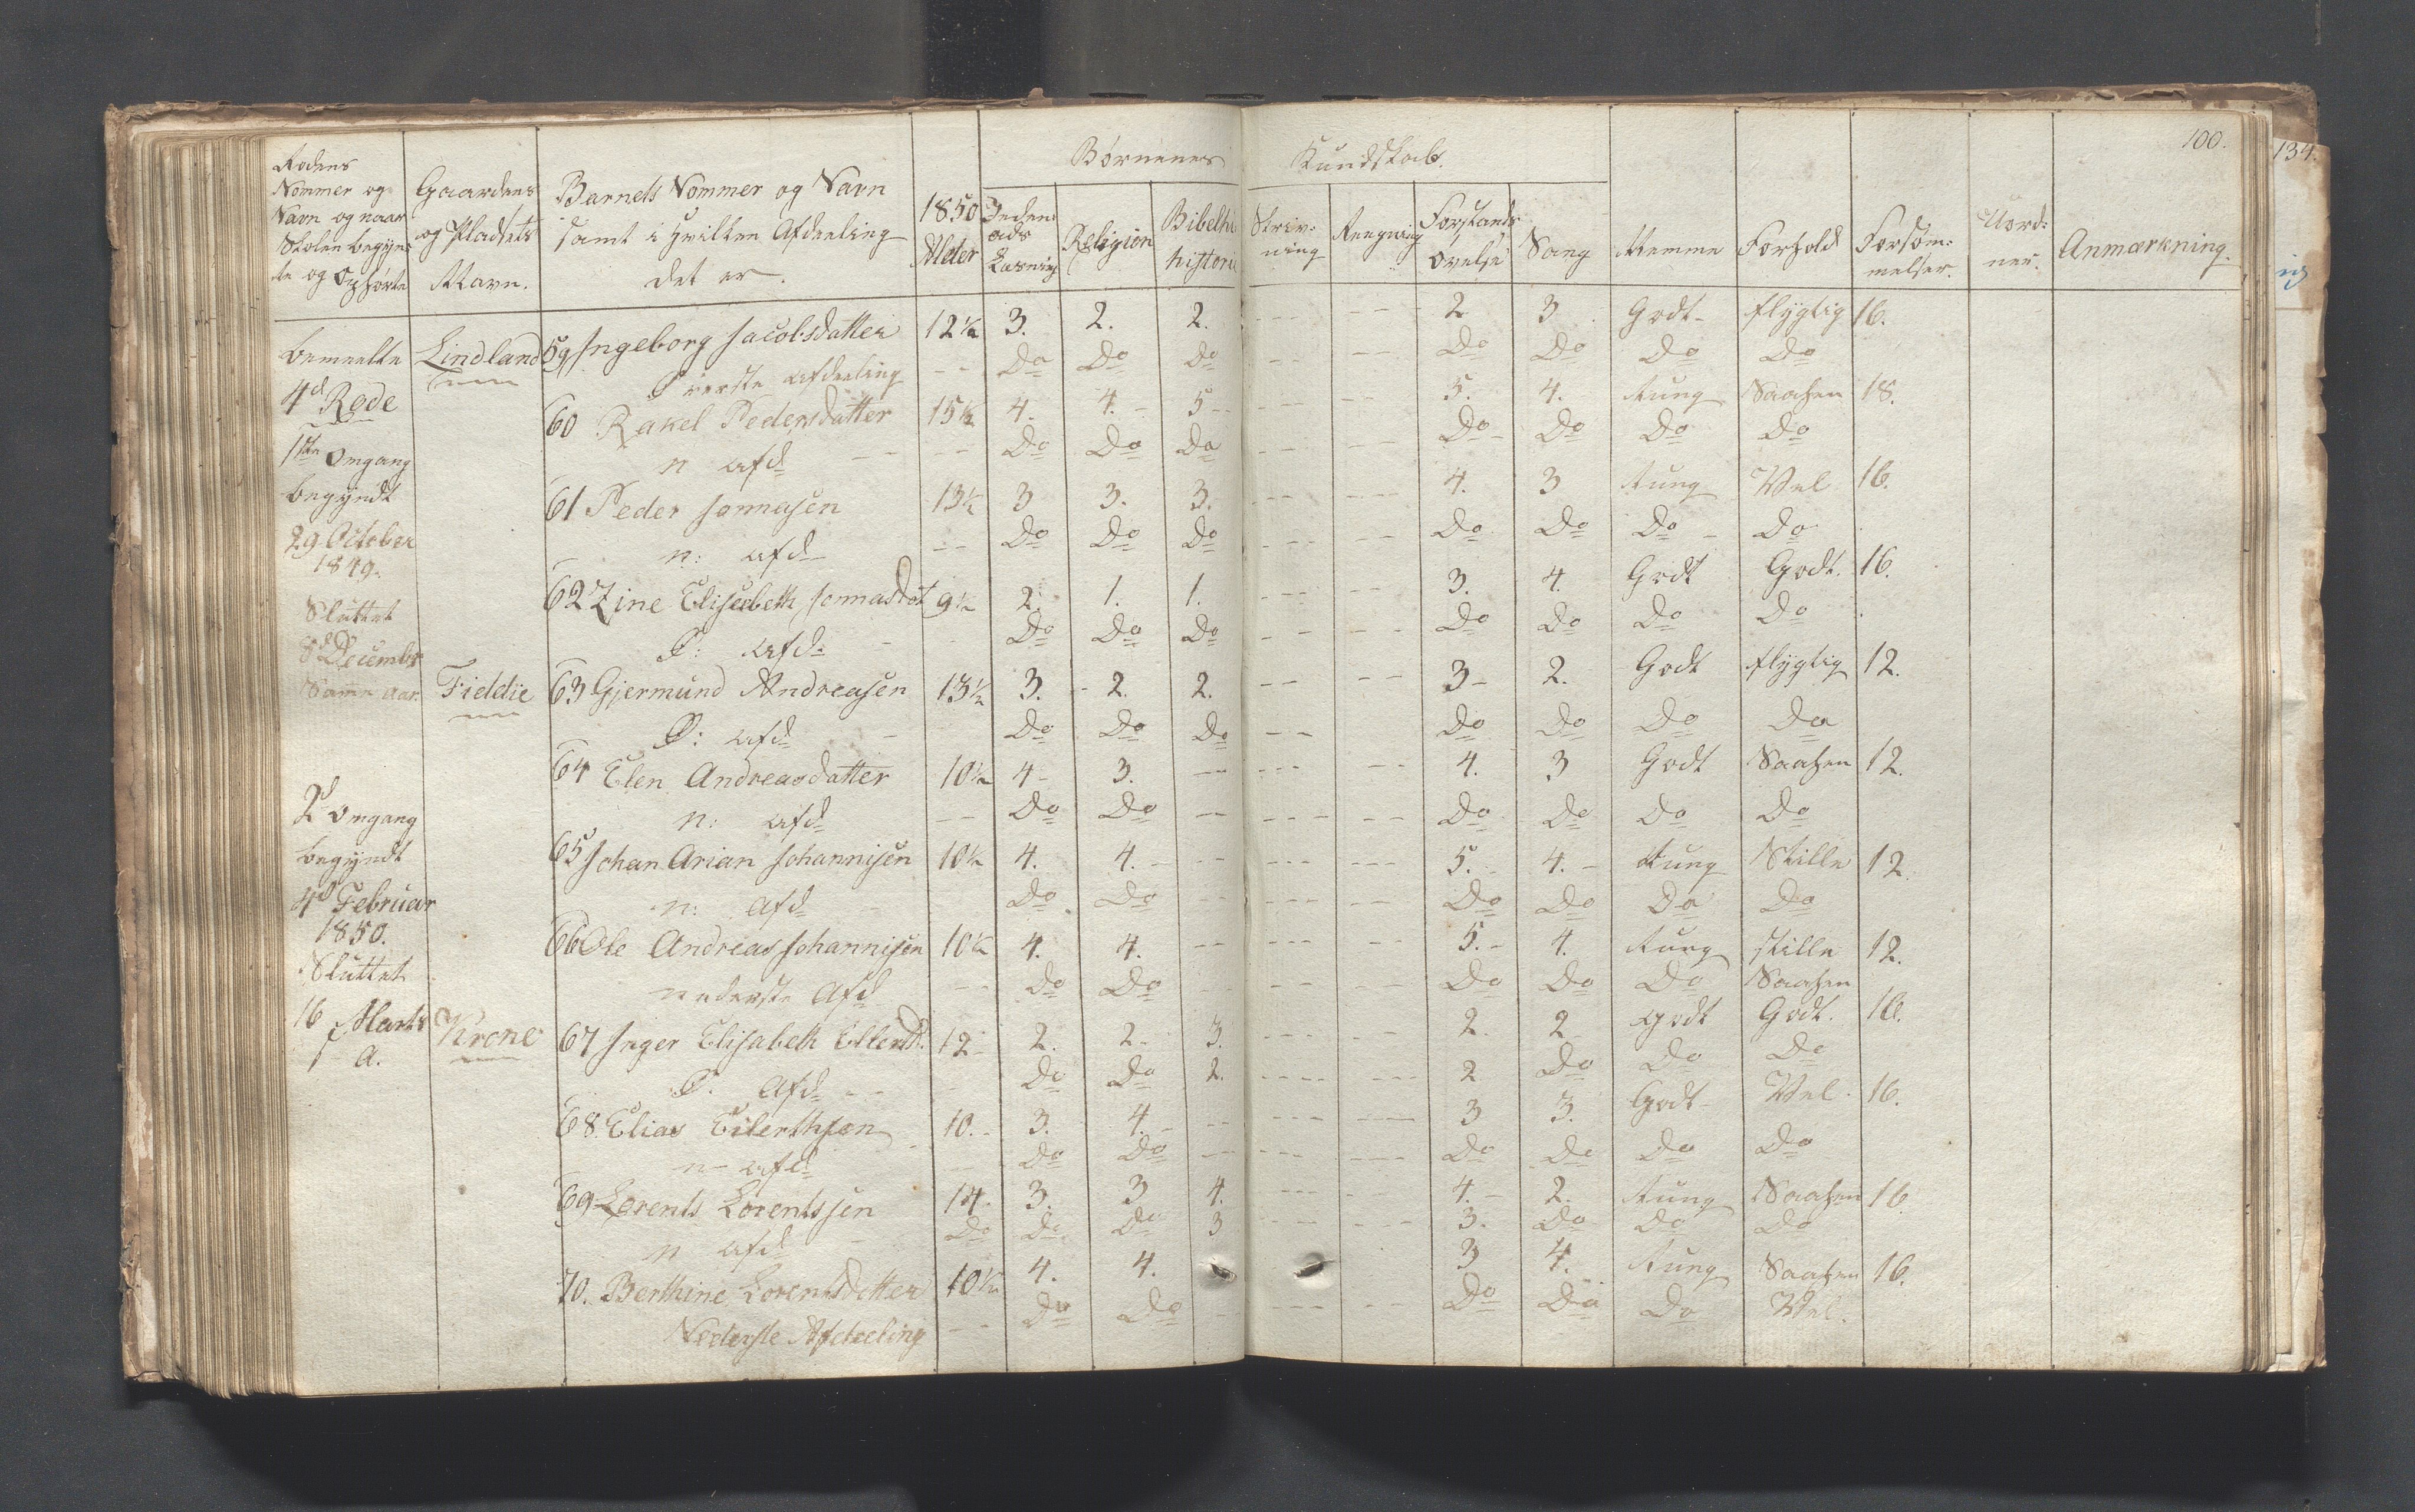 100.
134.
Børnenes Kundskab.
Rodens Nommer og Navn og naar Skolen begyndte og Ophørte
Gaardens og Pladsets Navn.
Barnets Nommer og Navn samt i hvilken Afdeeling det er.
1850 Alder
Religion
Bibelhistorie
Skrivning
Regning
Forstands Øvelse
Sang
Nemme
Forhold
Forsømmelser.
Uordner.
Anmærkning.
bemeelte Lindland 59 Ingeborg Jacobsdatter 12½ 3. 2. 2. - - - - - - 2 3 Godt flygtig 16.
Øverste Afdeeling - - Do Do Do - - - - Do Do Do Do
4d Rode 60 Rakel Pedersdatter 15½ 4. 4. 5 - - - - 5. 4. tung Saahen 18.
n Afd - - Do Do Do - - - - Do Do Do Do
1ste Omgang
begyndt 61 Peder Jonnasen 13½ 3 3. 3. - - - - - - 4. 3 tung Vel 16.
29 October n: Afd - - Do Do Do - - - - - Do Do Do Do
1849. 62 Zine Elisebeth Jonnasdot 9½ 2. 1. 1. - - - - - 3. 4. Godt Godt. 16.
Sluttet Ø: Afd: - Do Do Do - - - - Do Do Do Do
8d December
Samme Aar. Fiddie 63 Gjermund Andreasen 13½ 3. 2. 2. - - - - 3 2. Godt flygtig 12.
Ø: Afd - Do Do Do - - Do Do Do Do
64 Elen Andreasdatter 10½ 4 3. - - - - - - - 4. 3 Godt Saahen 12.
2d Omgang n: Afd - - Do Do - - - - - - - Do Do Do Do
begyndt 65 Johan Arian Johannisen 10½ 4. 4. - - - - - - - - 5. 4. tung Stille 12.
4d Februar n: Afd Do Do - - - - - - - Do Do Do Do
1850. 66 Ole Andreas Johannisen 10½ 4. 4. - - - - - - - 5. 4. tung stille 12.
Sluttet nederste Afd - - Do Do - - - - - Do Do Do Saahen
16 Marts Krone 67 Inger Elisabeth Ellertd. 12 2. 2. 3. - - - - 2. 2 Godt Godt. 16.
A. Ø. Afd - - Do Do 2. - - - - - - - 2 Do Do Do
68 Elias Eilerthsen 10. 3. 4. - - - - - - - 3 3. Godt Vel. 16.
n Afd Do Do - - - - - - - - Do Do Do Do
69 Lorents Lorentssen 14. 3. 3 4. - - - - - 4. 2. tung Saahen 16
n Afd Do Do Do 3 - - - - - - 3. Do Do Do
70. Berthine Lorentsdatter 10½ 4. 4. 3 4. tung Saahen 16.
Nederste Afdeeling - - Do Do - - - - - - Do Do Do Vel.